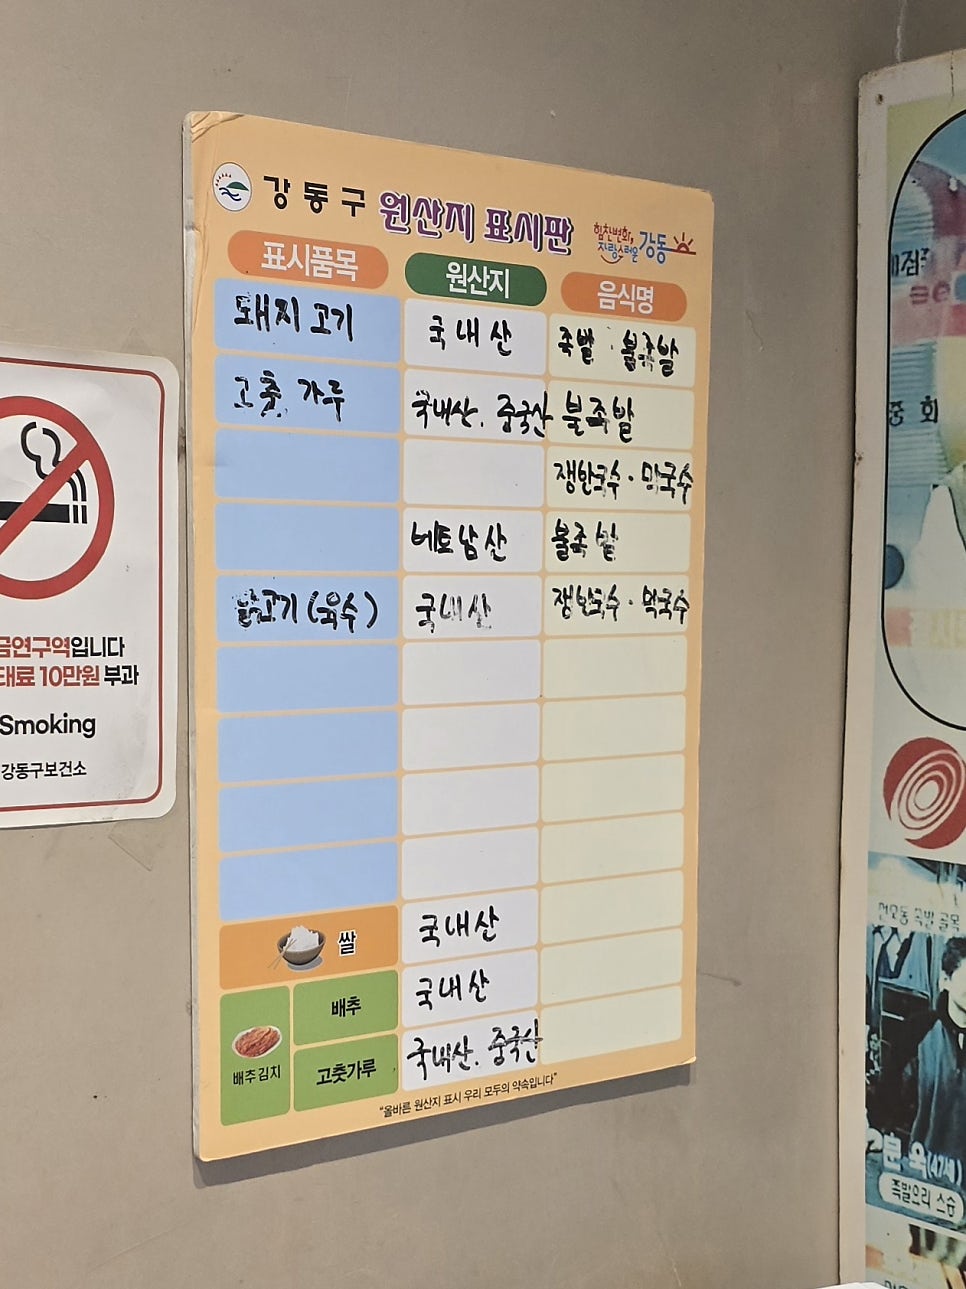 강동구 원산지 표시판
힘찬변화, 자랑스러운 강동
표시품목 원산지 음식명
돼지고기 국내산 족발 · 불족발
고춧가루 국내산. 중국산 불족발
쟁반국수 · 막국수
베토남산 불족발
닭고기(육수) 국내산 쟁반국수 · 막국수
쌀 국내산
배추김치 배추 국내산
고춧가루 국내산. 중국산
"올바른 원산지 표시 우리 모두의 약속입니다"
금연구역입니다
태료 10만원 부과
Smoking
강동구보건소
중 화
옥(47세)
족발요리 스승